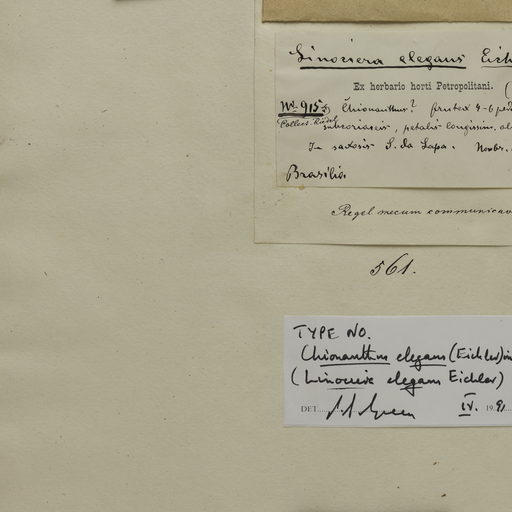 Linociera elegans Eich
Ex herbario horti Petropolitani.
No. 915 Chionanthus? frutex 4-6 ped
Collect. Riedel
subcoriaceis, petalis longissim. al
In saxosis S. da Lapa. Novbr.
Brasilia
Regel mecum communicav
561.
TYPE NO.
Chionanthus elegans (Eichler)
(Linociera elegans Eichler)
DET. P.S. Green IV. 1991